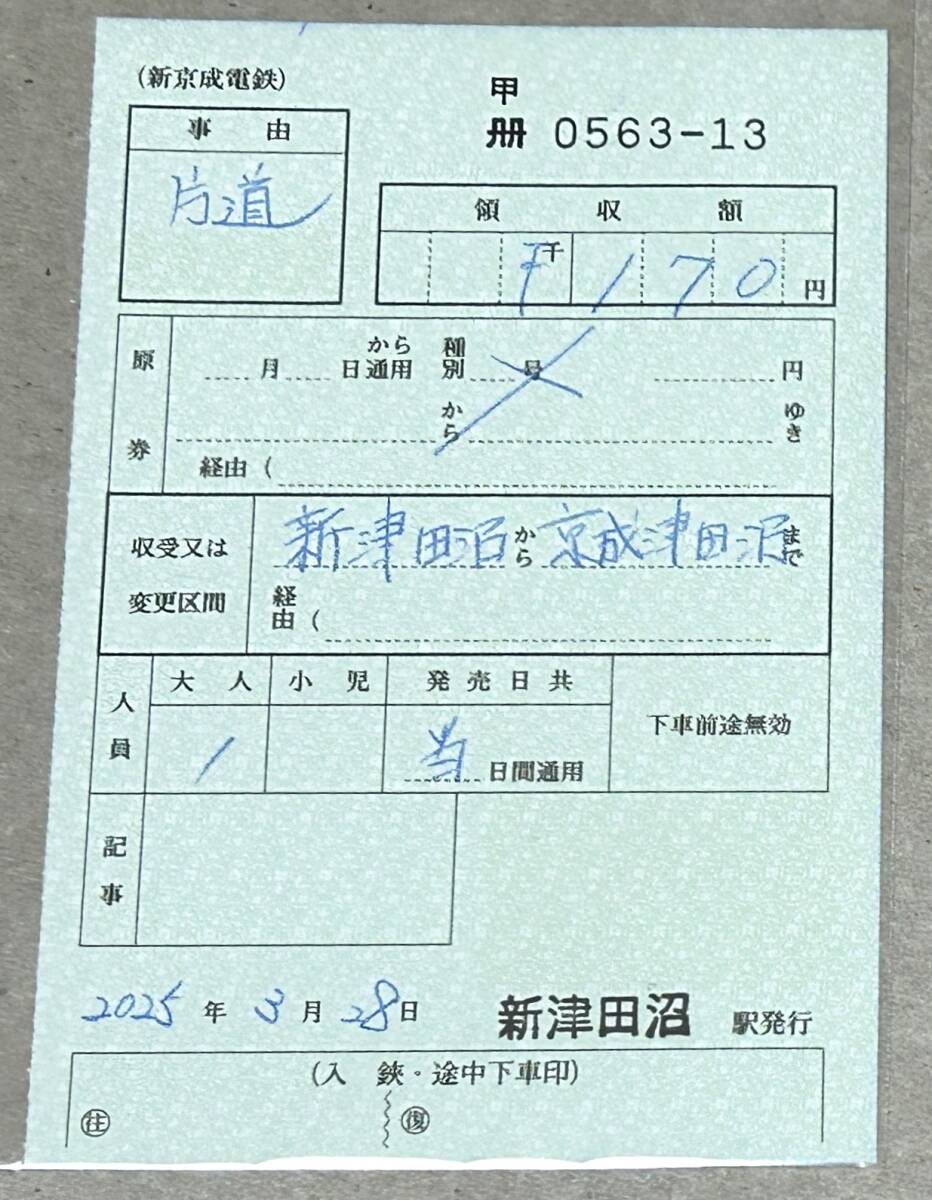 (新京成電鉄)
甲
冊 0563-13
事由
片道
領収額
千 170円
原券
月 日から通用 種別 号 円
から ゆき
経由 (
収受又は変更区間
新津田沼から京成津田沼まで
経由 (
人員
大人 小児 発売日共
1 当日間通用
下車前途無効
記事
2025年3月28日 新津田沼 駅発行
(入鋏・途中下車印)
㊟ ㊢